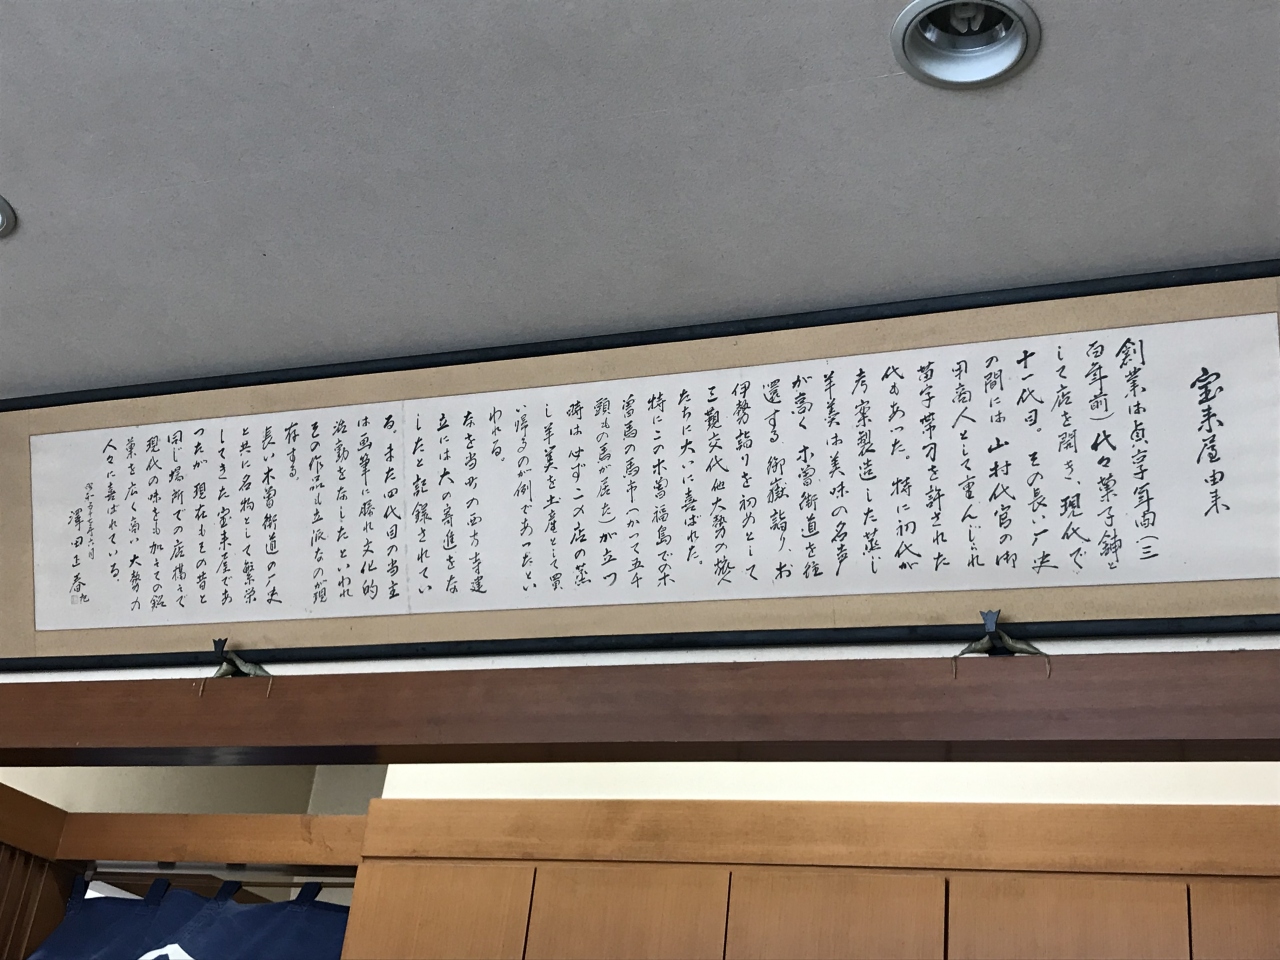 宝来屋由来
創業は貞享年間(三
百年前)代々菓子舗と
して店を開き、現代で
十一代目。その長い厂史
の間には 山村代官の御
用商人として重んじられ
苗字帯刀を許された
代もあった。特に初代が
考案製造した蒸し
羊羹は美味の名声
が高く 木曽街道を往
還する 御嶽詣り、お
伊勢詣りを初めとして
三観交代他大勢の旅人
たちに大いに喜ばれた。
特にこの木曽福島での木
曽馬の馬市(かつて五千
頭もの馬が居た)が立つ
時は 必ずこの店の蒸
し羊羹を土産として買
い帰るのが例であったとい
われる。
なを当町の西方寺建
立には大の寄進をな
したと記録されてい
る。また四代目の当主
は画筆に勝れ文化的
活動をなしたといわれ
その作品も立派なのが現
存する。
長い木曽街道の厂史
と共に名物として繁栄
してきた宝来屋であ
ったが 現在もその昔と
同じ場所での店構えで
現代の味をも加えての銘
菓を広く商い 大勢の
人々に喜ばれている。
澤田正春